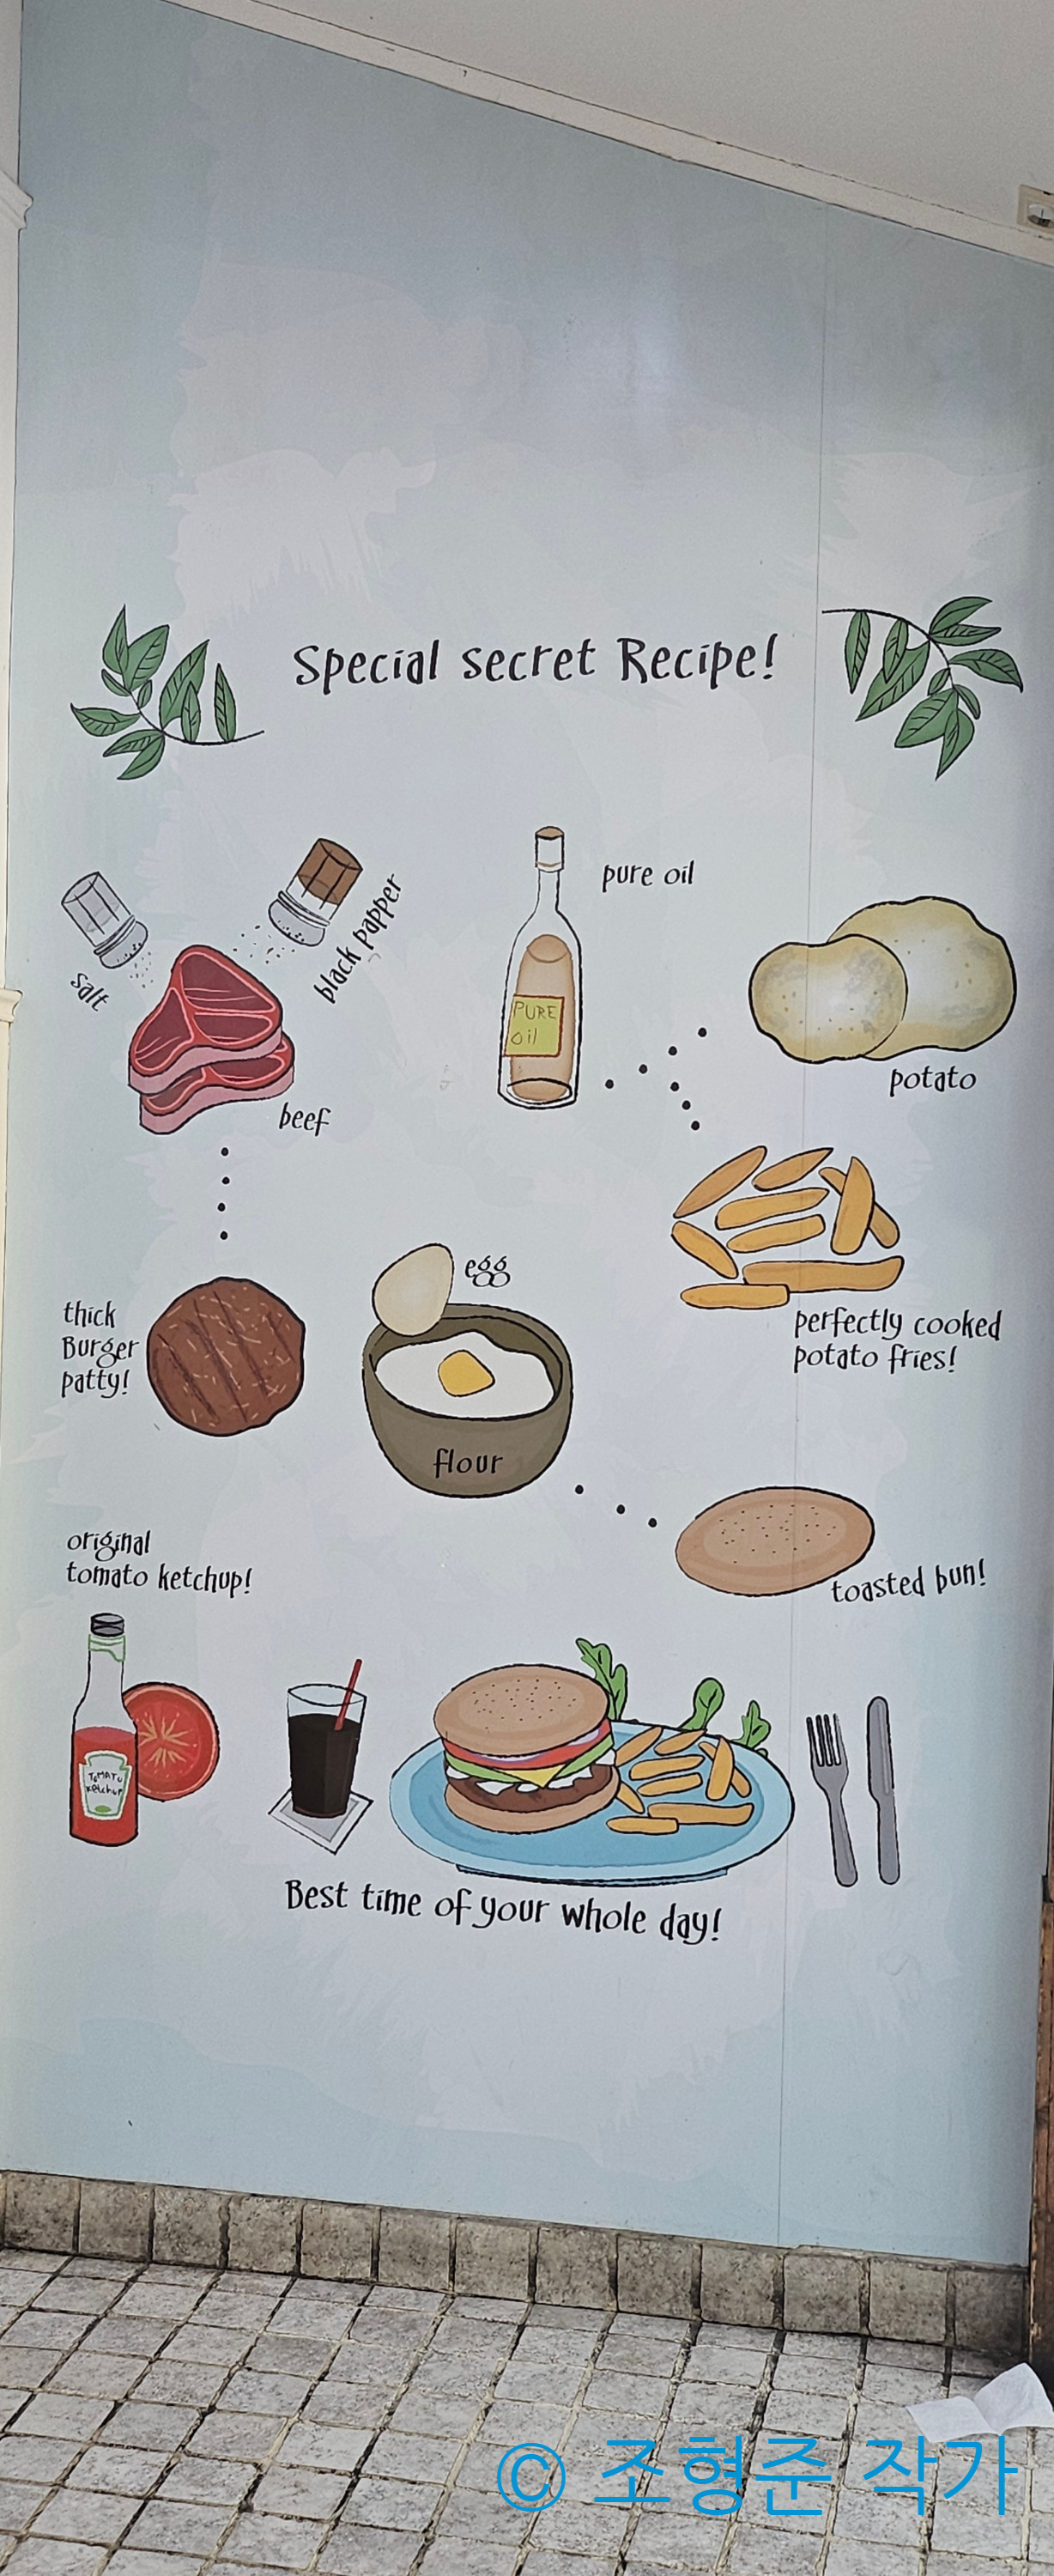 Special secret Recipe!
salt
black papper
beef
pure oil
PURE
oil
potato
perfectly cooked
potato fries!
thick
Burger
patty!
egg
flour
toasted bun!
original
tomato ketchup!
TOMATO
ketchup
Best time of your whole day!
© 조형준 작가